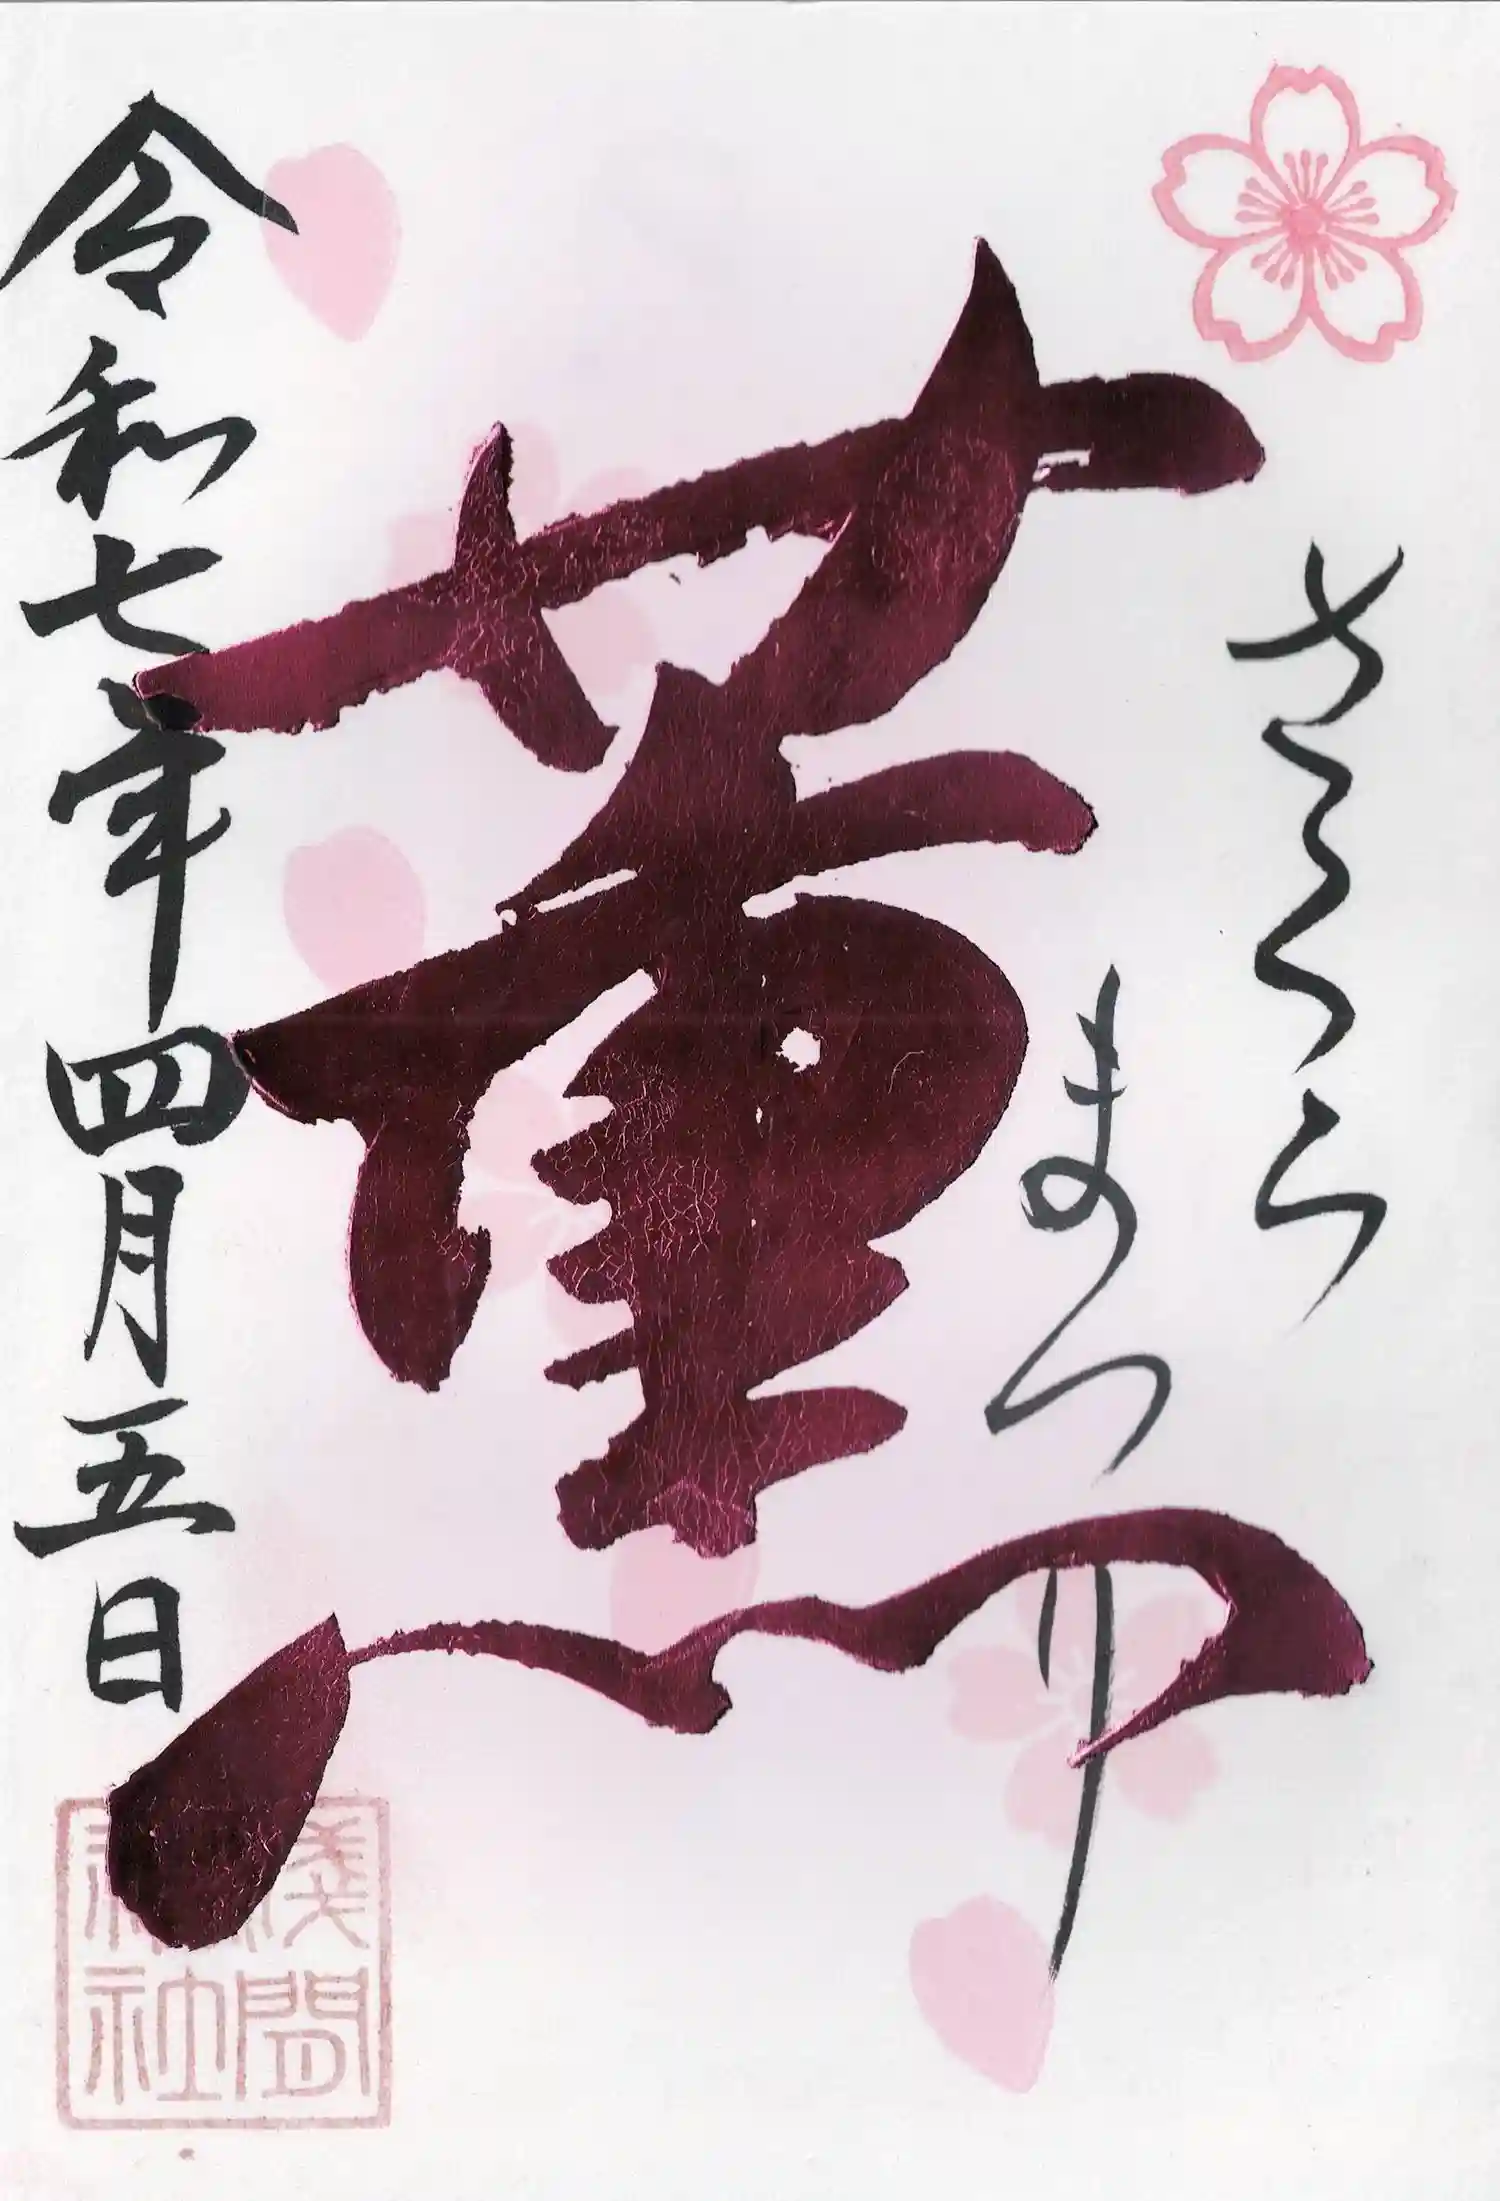 さくら
まつり
薫
令和七年四月五日
淺間
神社